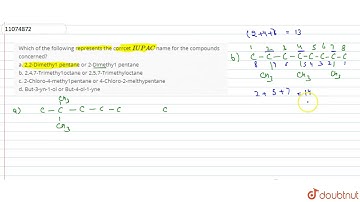 11074872
Which of the following represents the correct IUPAC name for the compounds
concerned?
a. 2,2-Dimethyl pentane or 2,Dimethyl pentane
b. 2,4,7-Trimethyl1octane or 2,5,7-Trimethyloctane
c. 2-Chloro-4-methylpentane or 4-Chloro-2-malthypentane
d. But-3-yn-1-ol or But-4-ol-1-yne
a) C - C - C - C - C C
CH3
CH3
= 13
b) 1 2 3 4 5 6 7 8
C - C - C - C - C - C - C - C
CH3 CH3 CH3
2 + 5 + 7
doubtnut